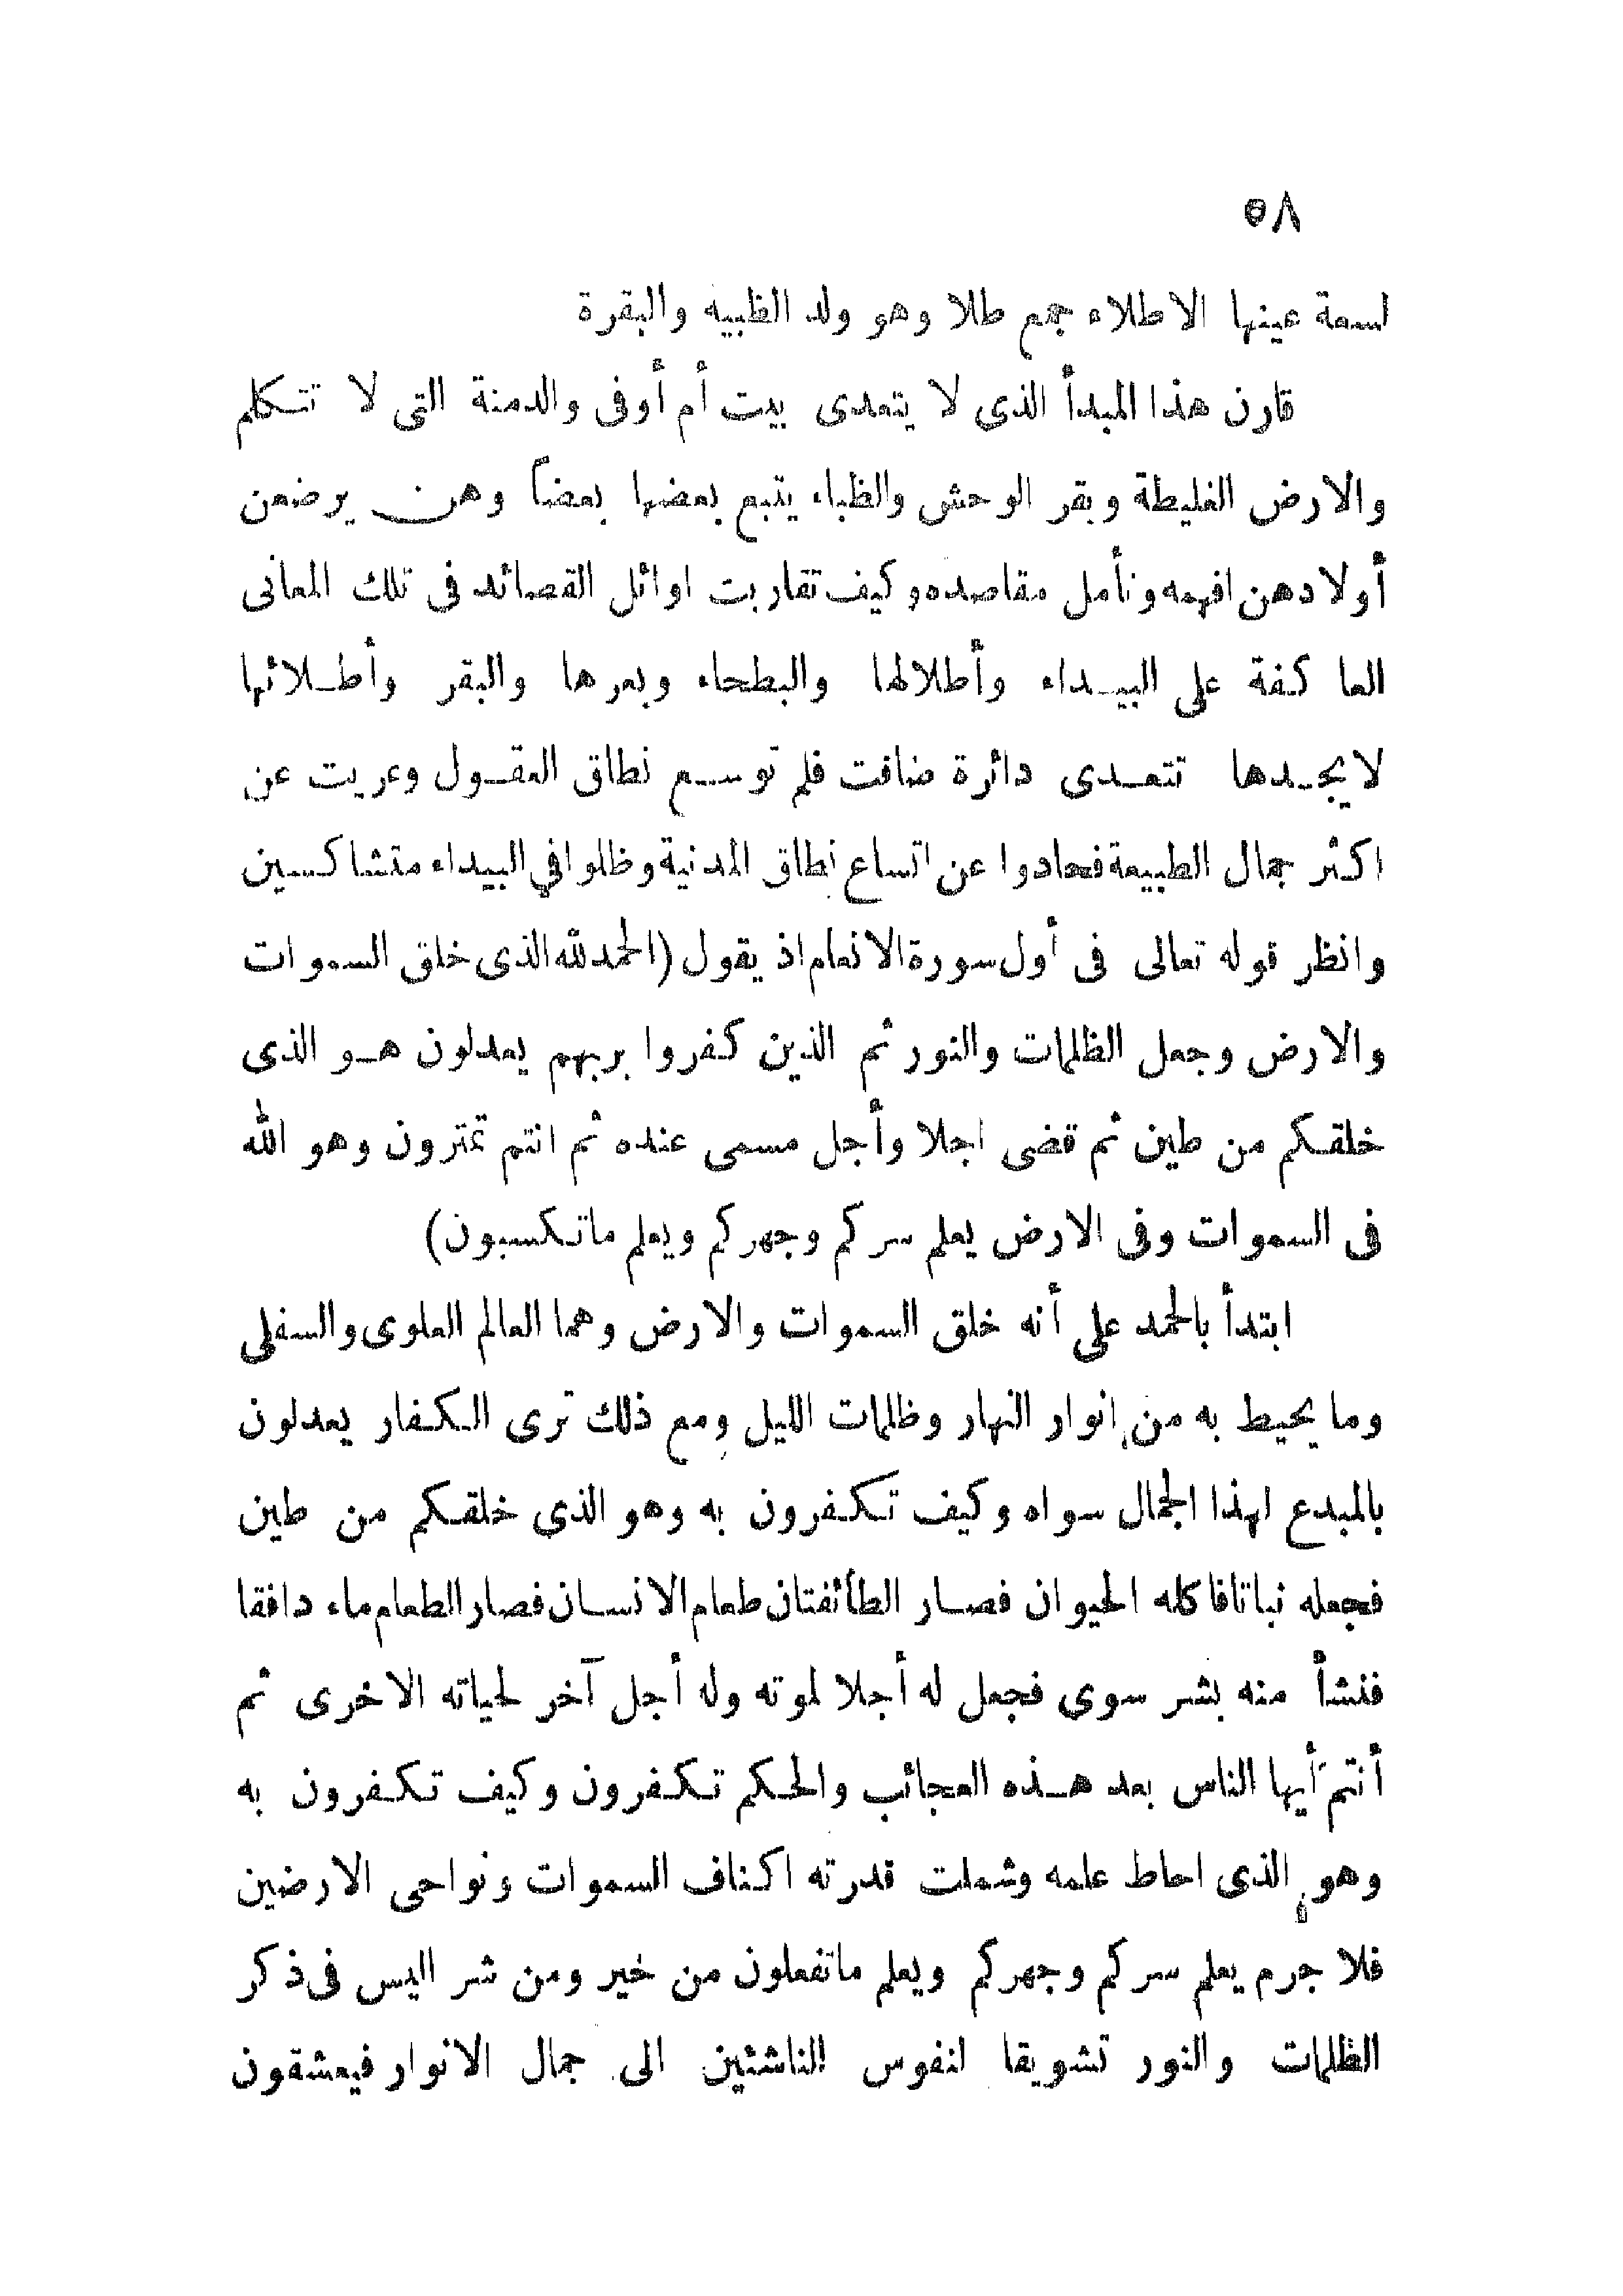 ٥٨
لسعة عينها الاطلاء جمع طلا وهو ولد الظبيه والبقرة
قارن هذا المبدأ الذى لا يتعدى بيت أم أوفى والدمنة التى لا تتكلم
والارض الغليطة وبقر الوحش والظباء يتبع بعضها بعضاً وهن يرضعن
أولادهن افهمه وتأمل مقاصده وكيف تقاربت اوائل القصائد فى تلك المعانى
العاكفة على البيداء وأطلالها والبطحاء وبعرها والبقر وأطلائها
لايجدها تتعدى دائرة ضاقت فلم توسع نطاق العقول وعريت عن
اكثر جمال الطبيعة فحادوا عن اتساع نطاق المدنية وظلوا في البيداء متشاكسين
وانظر قوله تعالى فى أول سورة الانعام اذ يقول (الحمد لله الذى خلق السموات
والارض وجعل الظلمات والنور ثم الذين كفروا بربهم يعدلون هو الذى
خلقكم من طين ثم قضى اجلا وأجل مسمى عنده ثم انتم تمترون وهو الله
فى السموات وفى الارض يعلم سركم وجهركم ويعلم ماتكسبون)
ابتدأ بالحمد على أنه خلق السموات والارض وهما العالم العلوى والسفلى
وما يحيط به من انوار النهار وظلمات الليل ومع ذلك ترى الكفار يعدلون
بالمبدع لهذا الجمال سواه وكيف تكفرون به وهو الذى خلقكم من طين
فجعله نباتا فاكله الحيوان فصار الطائفتان طعام الانسان فصار الطعام ماء دافقا
فنشأ منه بشر سوى فجعل له أجلا لموته وله أجل آخر لحياته الاخرى ثم
أنتم أيها الناس بعد هذه العجائب والحكم تكفرون وكيف تكفرون به
وهو الذى احاط علمه وشملت قدرته اكناف السموات ونواحى الارضين
فلا جرم يعلم سركم وجهركم ويعلم ماتفعلون من خير ومن شر اليس فى ذكر
الظلمات والنور تشويقا لنفوس الناشئين الى جمال الانوار فيعشقون